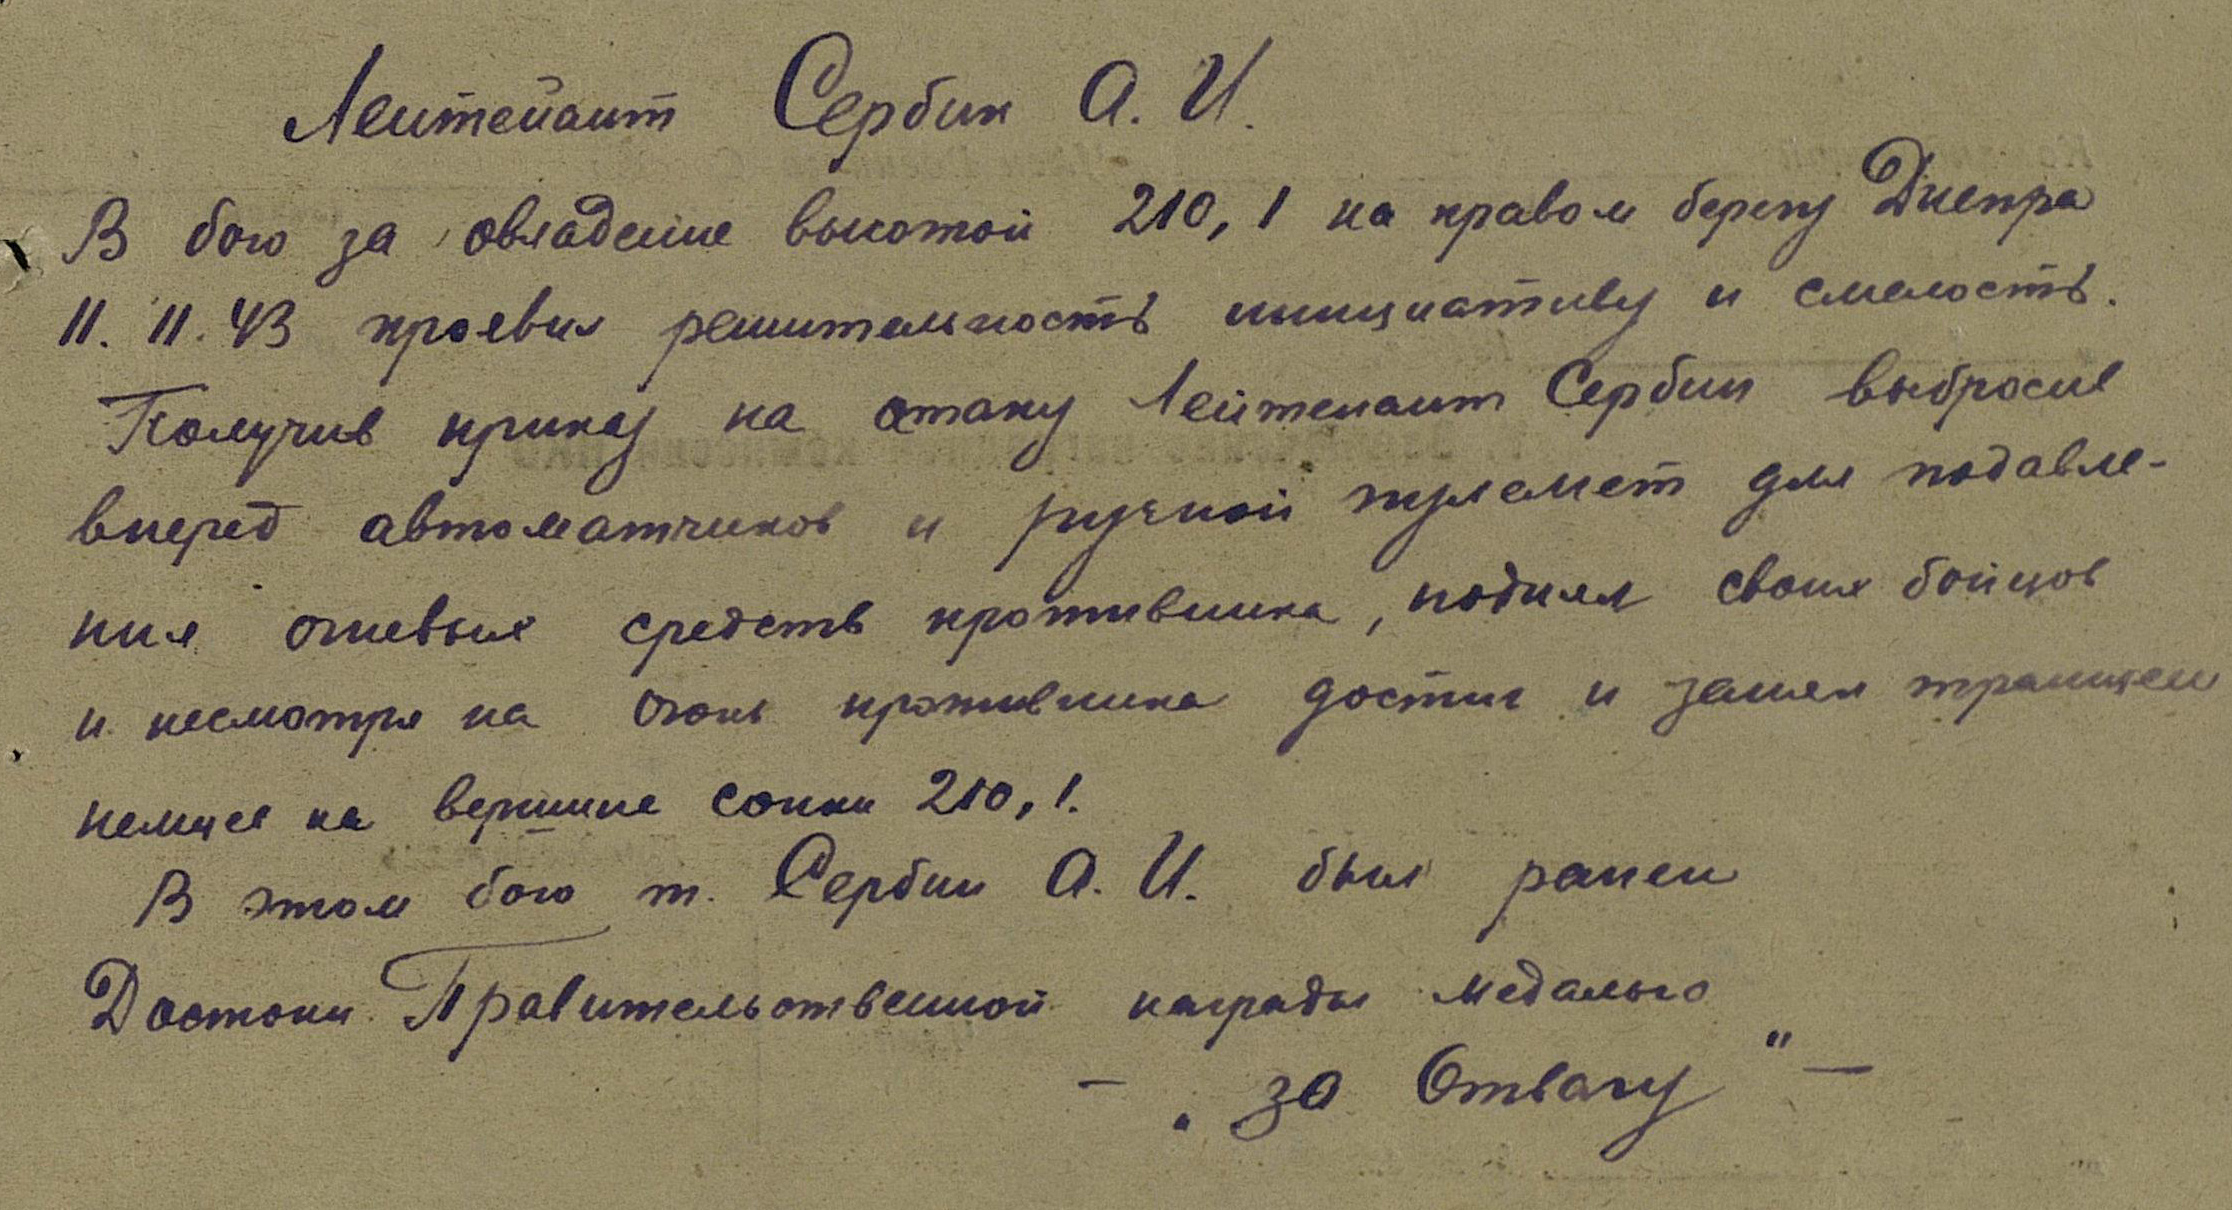 Лейтенант Сербин А. И.
В бою за овладение высотой 210,1 на правом берегу Днепра
11. 11. 43 проявил решительность инициативу и смелость.
Получив приказ на атаку Лейтенант Сербин выбросил
вперед автоматчиков и ручной пулемет для подавле-
ния огневых средств противника, поднял своих бойцов
и несмотря на огонь противника достиг и занял траншеи
немцев на вершине сопки 210,1.
В этом бою т. Сербин А. И. был ранен
Достоин Правительственной награды медалью
— „за Отвагу" —